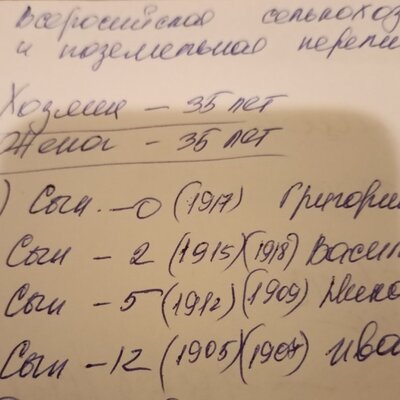 Всеросийская сельхохоз
и поземельная перепи
Хозяин - 35 лет
Жена - 35 лет
) Сын. - 0 (1917) Григори
Сын - 2 (1915)(1918) Васил
Сын - 5 (1912)(1909) Нико
Сын - 12 (1905)(1907) Ива